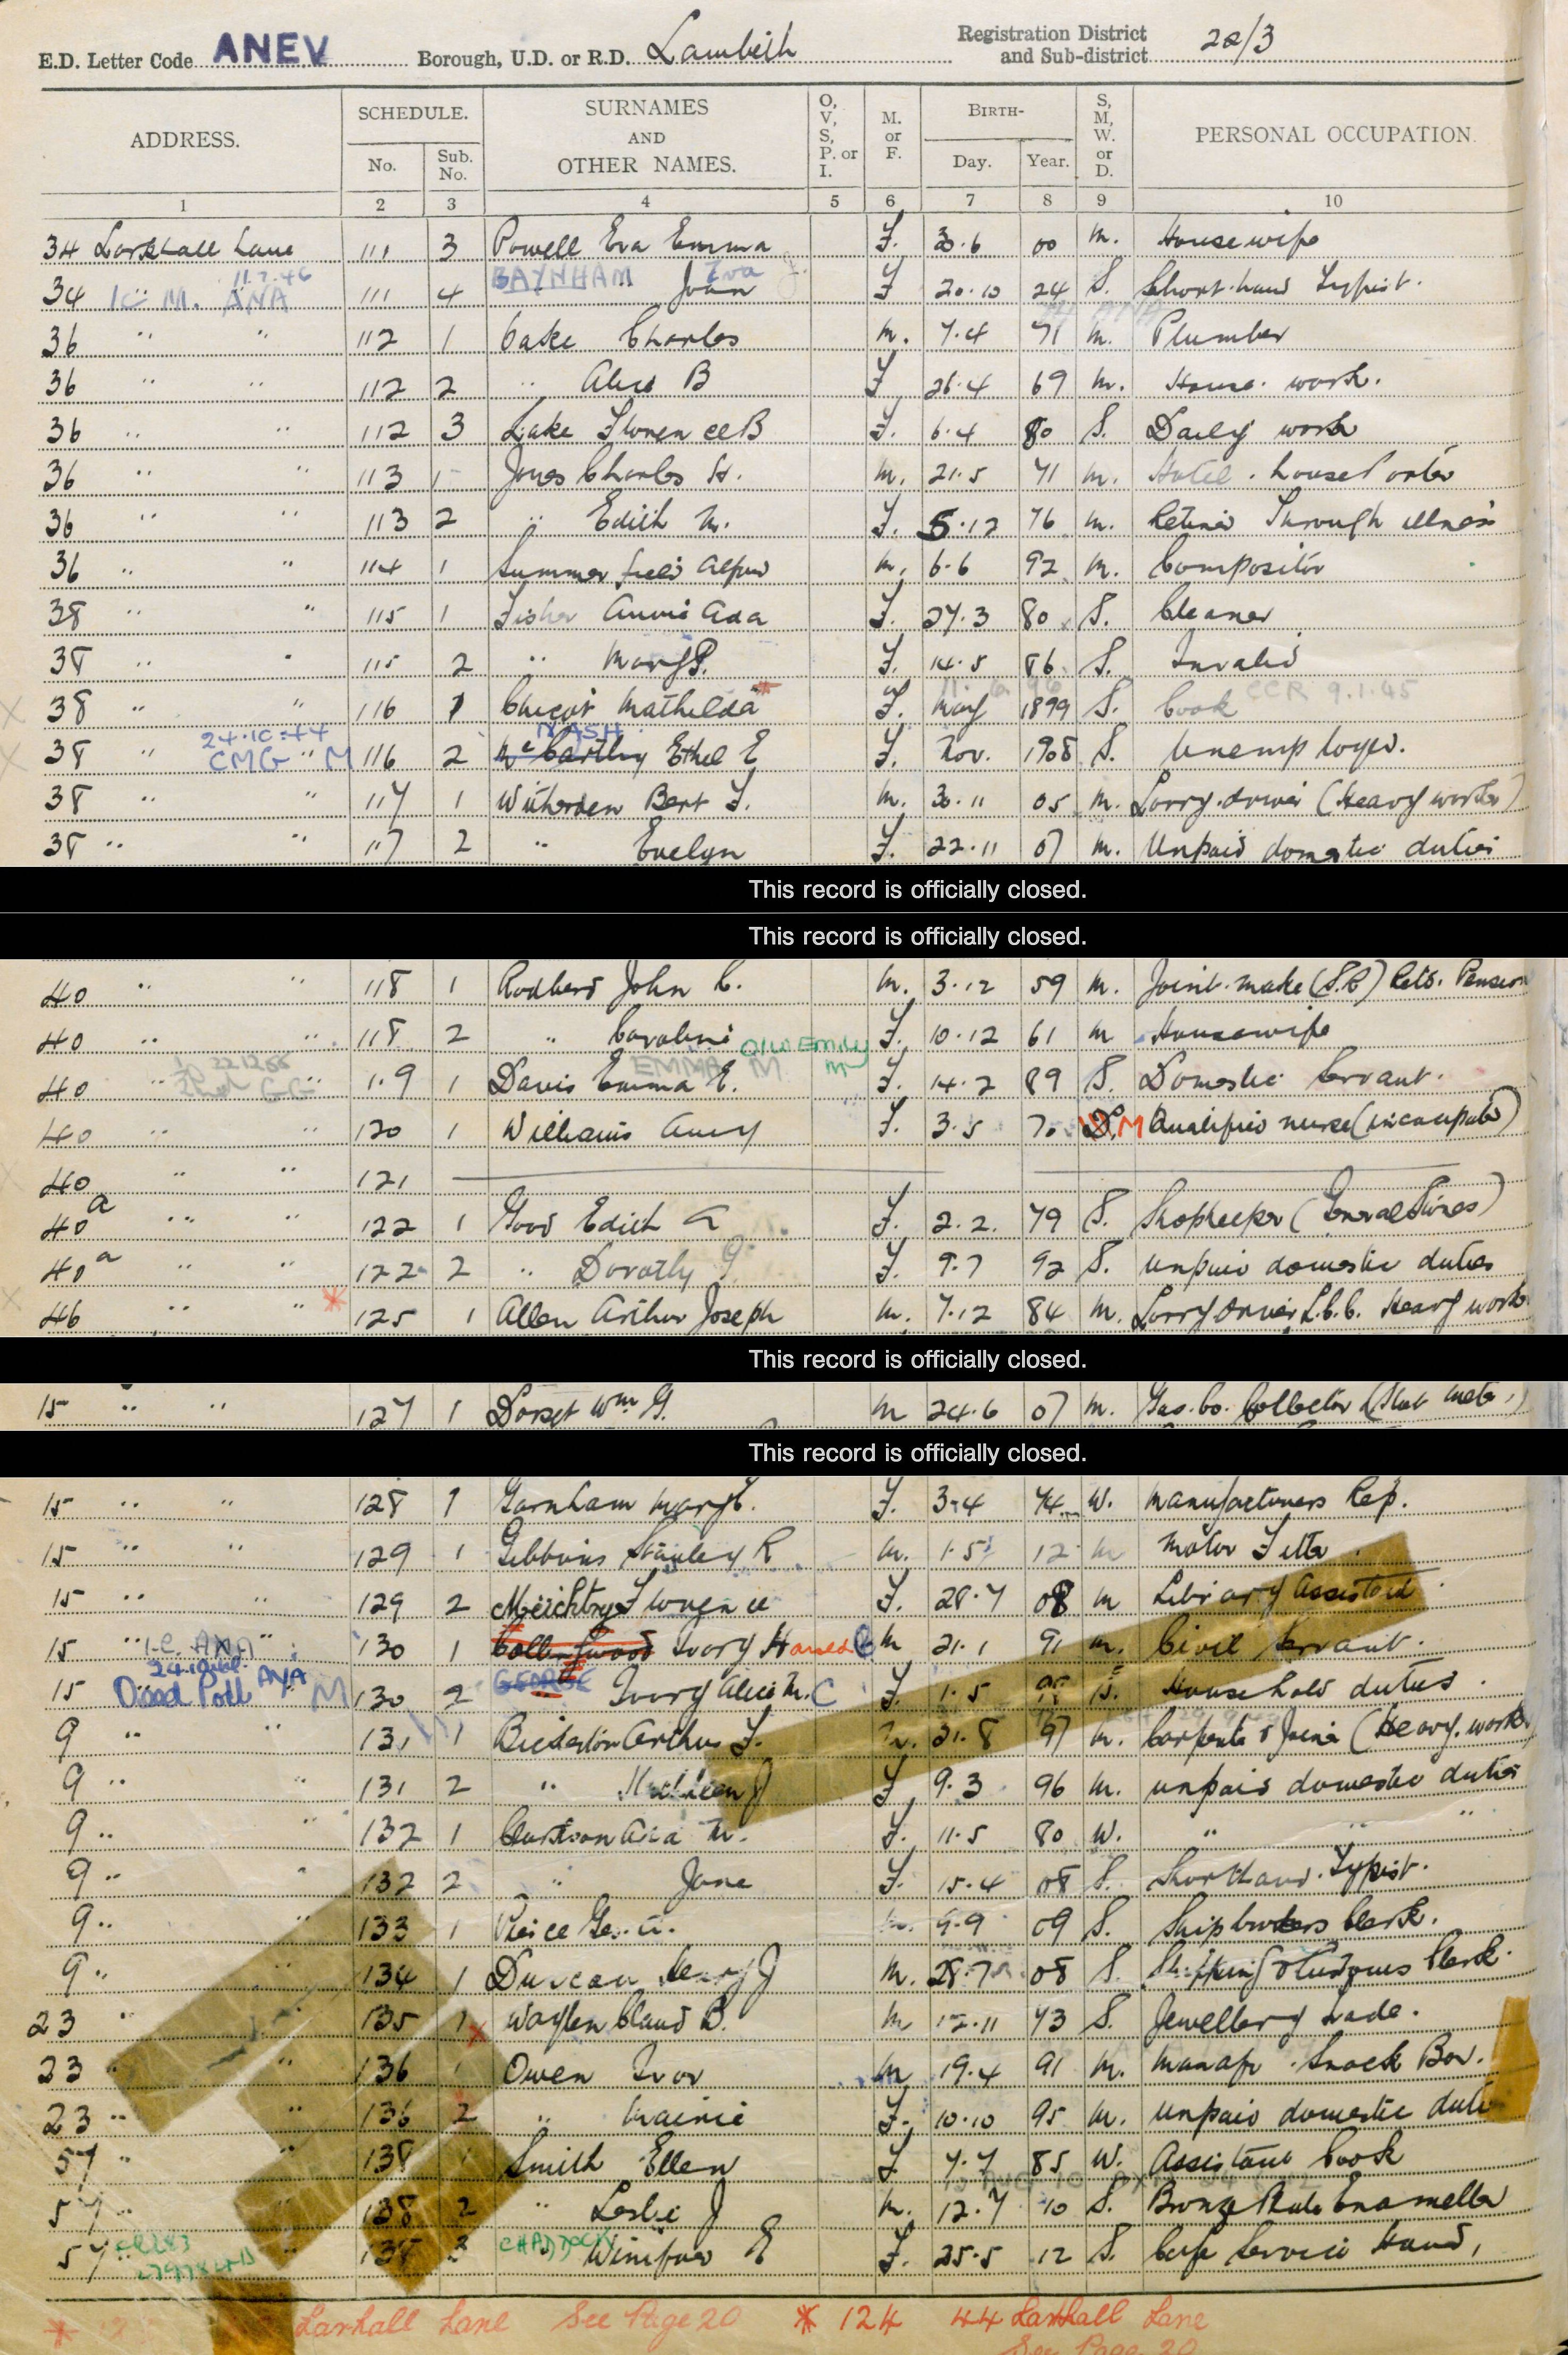 E.D. Letter Code ANEV Borough, U.D. or R.D. Lambeth Registration District and Sub-district 22/3
ADDRESS. SCHEDULE. No. Sub. No. SURNAMES AND OTHER NAMES. O, V, S, P. or I. M. or F. BIRTH- Day. Year. S, M, W. or D. PERSONAL OCCUPATION.
1 2 3 4 5 6 7 8 9 10
34 Larkhall Lane 111 3 Powell Eva Emma F. 30.6 00 M. Housewife
11.7.46 BAYNHAM Eva J.
34 " M. ANA 111 4 " Joan F 20.10 24 S. Short-hand Typist.
36 " " 112 1 Cake Charles M. 7.4 71 M. Plumber
36 " " 112 2 " Alice B F 26.4 69 M. House work.
36 " " 112 3 Lake Florence B F. 6.4 80 S. Daily work
36 " " 113 1 Jones Charles H. M. 21.5 71 M. Hotel. house Porter
36 " " 113 2 " Edith M. F. 5.12 76 M. Retired Through illness
36 " " 114 1 Summerfield Alfred M. 6.6 92 M. Compositor
38 " " 115 1 Fisher Annie Ada F. 27.3 80 S. Cleaner
38 " " 115 2 " Mary P. F. 14.5 86 S. Invalid
38 " " 116 1 Mathilda F. May 1899 S. Cook CCR 9.1.45
24.10.44 NASH
38 " CMG " M 116 2 McCarthy Ethel E F. Nov. 1908 S. Unemployed.
38 " " 117 1 Witherden Bert F. M. 30.11 05 M. Lorry driver (Heavy worker)
38 " " 117 2 " Evelyn F. 22.11 07 M. Unpaid domestic duties
This record is officially closed.
This record is officially closed.
40 " " 118 1 John C. M. 3.12 59 M. Joint make (S.R) Retd. Pension
40 " " 118 2 " Caroline F. 10.12 61 M Housewife
EMMA M Emily M
40 " " 119 1 Davis Emma E. F. 14.2 89 S. Domestic Servant.
40 " " 120 1 Williams Amy F. 3.5 70 M Qualified nurse (incapable)
40 " " 121
40a " " 122 1 Good Edith A F. 2.2. 79 S. Shopkeeper (General Stores)
40a " " 122 2 " Dorothy G. F. 9.7 92 S. unpaid domestic duties
46 " " * 125 1 Allen Arthur Joseph M. 7.12 84 M. Lorry Driver L.C.C. Heavy work
This record is officially closed.
15 " " 127 1 Dorset Wm G. M 24.6 07 M. Gas. Co. Collector (Slot meter)
This record is officially closed.
15 " " 128 1 Garnham Mary E. F. 3.4 74 W. Manufacturers Rep.
15 " " 129 1 Gibbons Stanley R M. 1.5 12 M Motor Fitter
15 " " 129 2 Florence F. 28.7 08 M Library Assistant
15 " " 130 1 Collingwood Ivory Harold C M 21.1 91 M. Civil Servant.
GEORGE
15 Dead Poll ANA M 130 2 Ivory Alice M. C F. 1.5 Household duties.
9 " " 131 1 Arthur F. M. 21.8 97 M. Carpenter & Joiner (Heavy work)
9 " " 131 2 " Kathleen J F 9.3 96 M. unpaid domestic duties
9 " 132 1 Ada M. F. 11.5 80 W. " "
9 " " 132 2 " Jane F. 15.4 08 S. Shorthand Typist.
9 " " 133 1 Peice Geo. A. M. 9.9 09 S. Shipbrokers Clerk.
9 " " 134 1 Duncan Henry J M. 28.7 08 S. Shipping & Customs Clerk
23 " " 135 1 Waylen Claud B. M 12.11 73 S. Jewellery trade.
23 " " 136 1 Owen Ivor M 19.4 91 M. Manager Snack Bar.
23 " " 136 2 " Mainie F. 10.10 95 M. unpaid domestic duties
57 " " 138 1 Smith Ellen F 7.7 85 W. Assistant Cook
57 " " 138 2 " Leslie J M. 12.7 10 S. Bronze Plate Enameller
CHADDOCK
57 " " 138 3 " Winifred E F. 25.5 12 S. Cafe Service Hand,
* Larkhall Lane See Page 20 * 124 44 Larkhall Lane
See Page 20